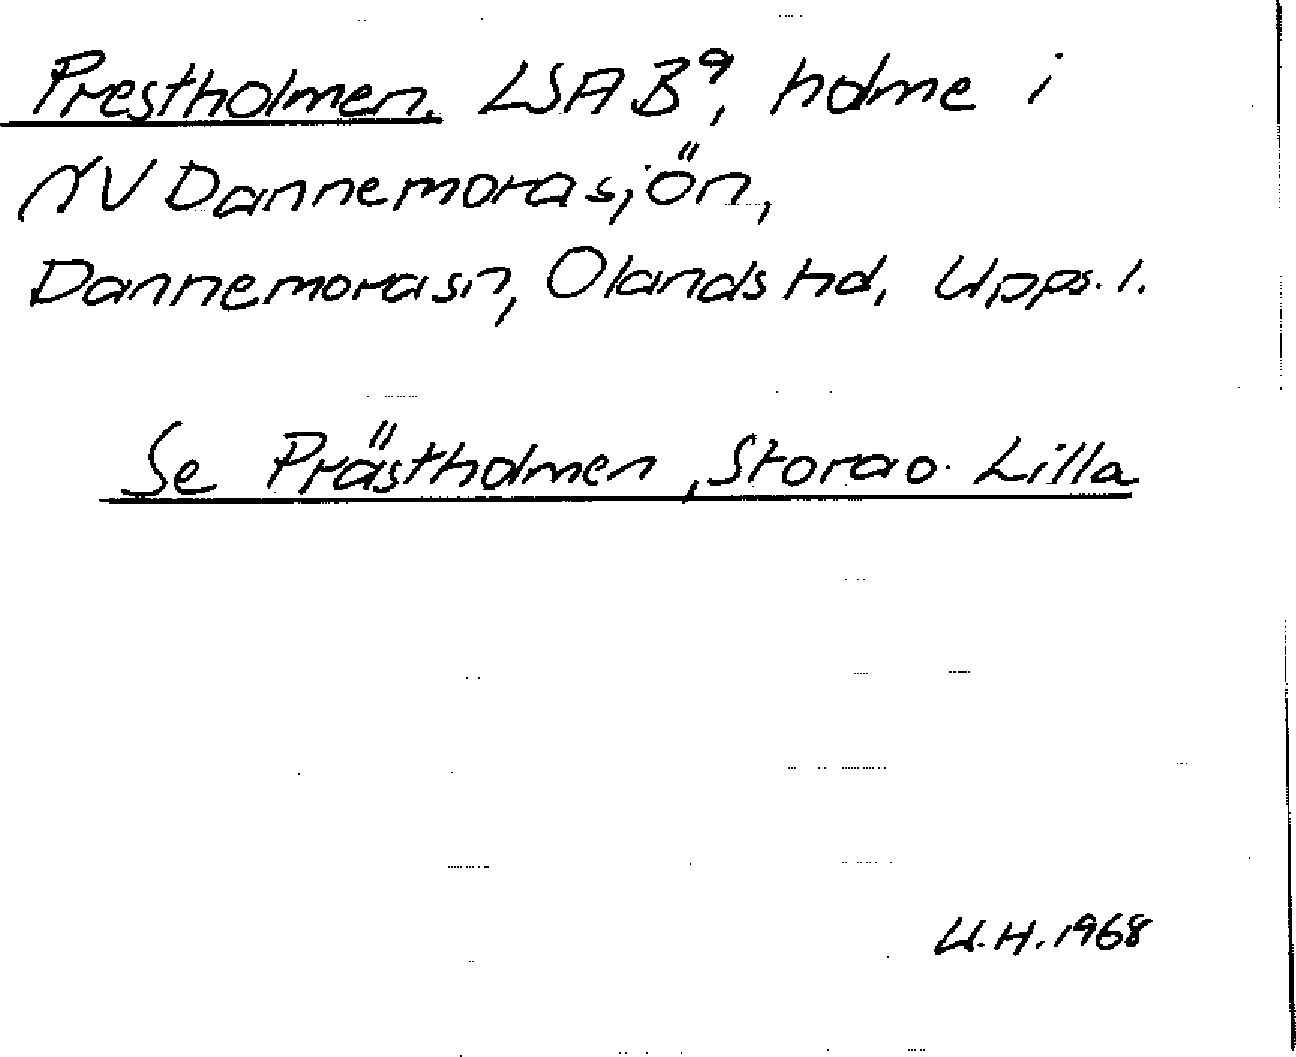 Prestholmen. LSA B⁹, holme i
NV Dannemorasjön,
Dannemorasn, Olands hd, Upps. l.
Se Prästholmen, Stora o. Lilla
U.H. 1968